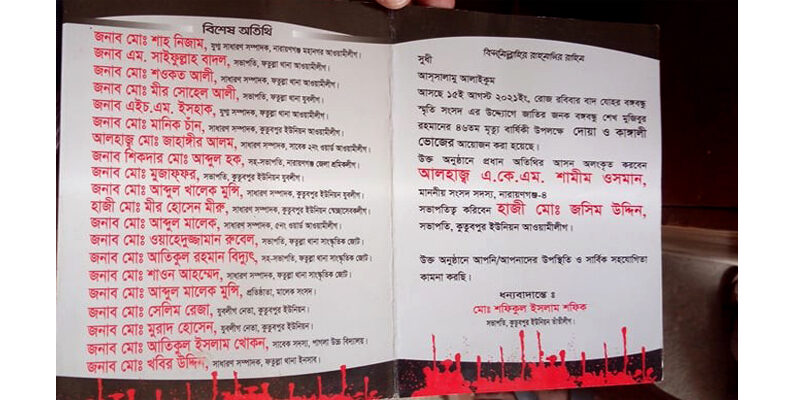 বিশেষ অতিথি
জনাব মোঃ শাহ নিজাম, যুগ্ম সাধারণ সম্পাদক, নারায়ণগঞ্জ মহানগর আওয়ামীলীগ।
জনাব এম. সাইফুল্লাহ বাদল, সভাপতি, ফতুল্লা থানা আওয়ামীলীগ।
জনাব মোঃ শওকত আলী, সাধারণ সম্পাদক, ফতুল্লা থানা আওয়ামীলীগ।
জনাব মোঃ মীর সোহেল আলী, সভাপতি, ফতুল্লা থানা যুবলীগ।
জনাব এইচ.এম. ইসহাক, যুগ্ম সম্পাদক, ফতুল্লা থানা আওয়ামীলীগ।
জনাব মোঃ মানিক চাঁন, সাধারণ সম্পাদক, কুতুবপুর ইউনিয়ন আওয়ামীলীগ।
আলহাজ্ব মোঃ জাহাঙ্গীর আলম, সাধারণ সম্পাদক, সাবেক ২নং ওয়ার্ড আওয়ামীলীগ।
জনাব শিকদার মোঃ আব্দুল হক, সহ-সভাপতি, নারায়ণগঞ্জ জেলা শ্রমিকলীগ।
জনাব মোঃ মুজাফ্ফর, সাধারণ সম্পাদক, কুতুবপুর ইউনিয়ন আওয়ামীলীগ।
জনাব মোঃ আব্দুল খালেক মুন্সি, সাধারণ সম্পাদক, কুতুবপুর ইউনিয়ন যুবলীগ।
হাজী মোঃ মীর হোসেন মীরু, সাধারণ সম্পাদক, কুতুবপুর ইউনিয়ন স্বেচ্ছাসেবকলীগ।
জনাব মোঃ আব্দুল মালেক, সাধারণ সম্পাদক, ৫নং ওয়ার্ড আওয়ামীলীগ।
জনাব মোঃ ওয়াহেদুজ্জামান রুবেল, সভাপতি, ফতুল্লা থানা সাংস্কৃতিক জোট।
জনাব মোঃ আতিকুল রহমান বিদ্যুৎ, সহ-সভাপতি, ফতুল্লা থানা সাংস্কৃতিক জোট।
জনাব মোঃ শাওন আহম্মেদ, সাধারণ সম্পাদক, ফতুল্লা থানা সাংস্কৃতিক জোট।
জনাব মোঃ আব্দুল মালেক মুন্সি, প্রতিষ্ঠাতা, মালেক সংসদ।
জনাব মোঃ সেলিম রেজা, যুবলীগ নেতা, কুতুবপুর ইউনিয়ন।
জনাব মোঃ মুরাদ হোসেন, যুবলীগ নেতা, কুতুবপুর ইউনিয়ন।
জনাব মোঃ আতিকুল ইসলাম খোকন, সাবেক সদস্য, পাগলা উচ্চ বিদ্যালয়।
জনাব মোঃ খবির উদ্দিন, সাধারণ সম্পাদক, ফতুল্লা থানা ইনসাব।
বিস্‌মিল্লাহির রাহমানির রাহিম
সুধী
আস্‌সালামু আলাইকুম
আসছে ১৫ই আগস্ট ২০২১ইং, রোজ রবিবার বাদ যোহর বঙ্গবন্ধু
স্মৃতি সংসদ এর উদ্যোগে জাতির জনক বঙ্গবন্ধু শেখ মুজিবুর
রহমানের ৪৬তম মৃত্যু বার্ষিকী উপলক্ষে দোয়া ও কাঙ্গালী
ভোজের আয়োজন করা হয়েছে।
উক্ত অনুষ্ঠানে প্রধান অতিথির আসন অলংকৃত করবেন
আলহাজ্ব এ.কে.এম. শামীম ওসমান,
মাননীয় সংসদ সদস্য, নারায়ণগঞ্জ-৪
সভাপতিত্ব করিবেন হাজী মোঃ জসিম উদ্দিন,
সভাপতি, কুতুবপুর ইউনিয়ন আওয়ামীলীগ।
উক্ত অনুষ্ঠানে আপনি/আপনাদের উপস্থিতি ও সার্বিক সহযোগিতা
কামনা করছি।
ধন্যবাদান্তে ঃ
মোঃ শফিকুল ইসলাম শফিক
সভাপতি, কুতুবপুর ইউনিয়ন তাঁতীলীগ।